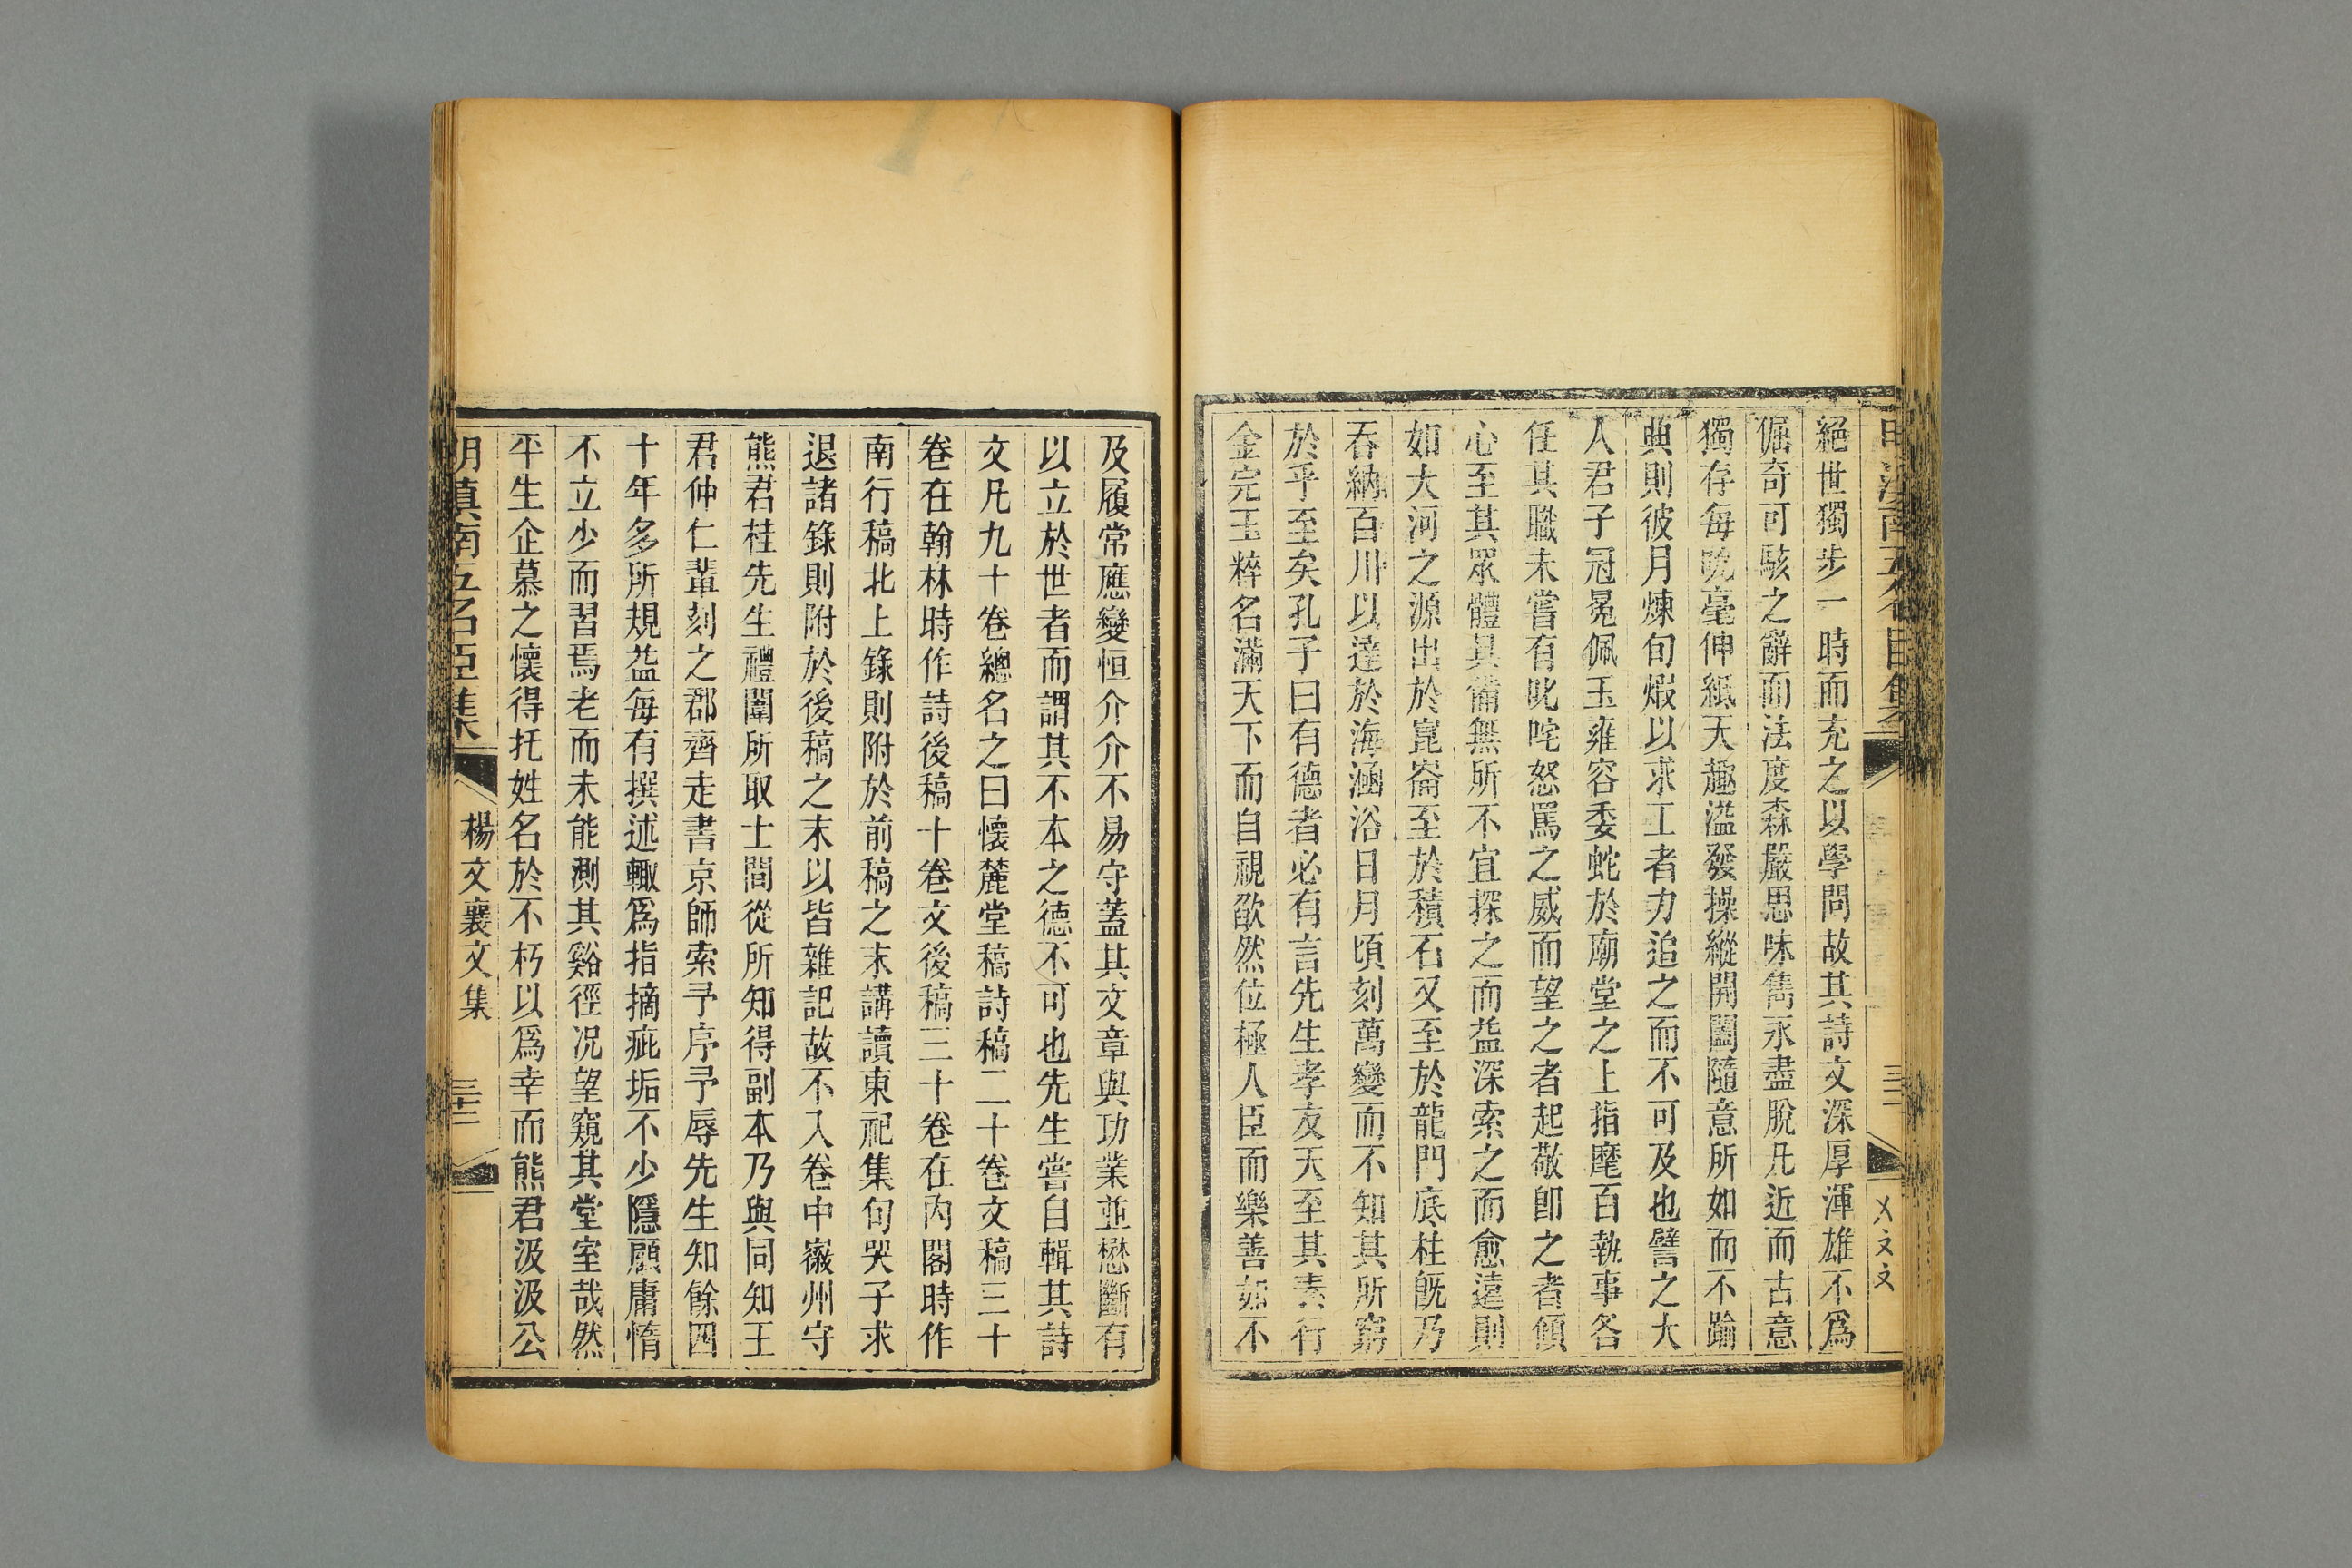 絕世獨步一時而充之以學問故其詩文深厚渾雄不爲
倔奇可駭之辭而法度森嚴思味雋永盡脫凡近而古意
獨存每吮毫伸紙天趣溢發操縱開闔隨意所如而不踰
典則彼月煉旬煆以求工者力追之而不可及也譬之大
人君子冠冕佩玉雍容委蛇於廟堂之上指麾百執事各
任其職未嘗有叱咤怒罵之威而望之者起敬卽之者傾
心至其眾體具備無所不宜探之而益深索之而愈遠則
如大河之源出於崑崙至於積石又至於龍門底柱旣乃
吞納百川以達於海涵浴日月頃刻萬變而不知其所窮
於乎至矣孔子曰有德者必有言先生孝友天至其素行
金完玉粹名滿天下而自視欿然位極人臣而樂善如不
及履常應變恒介介不易守蓋其文章與功業並懋斷有
以立於世者而謂其不本之德不可也先生嘗自輯其詩
文凡九十卷總名之曰懷麓堂稿詩稿二十卷文稿三十
卷在翰林時作詩後稿十卷文後稿三十卷在內閣時作
南行稿北上錄則附於前稿之末講讀東祀集句哭子求
退諸錄則附於後稿之末以皆雜記故不入卷中徽州守
熊君桂先生禮闈所取士間從所知得副本乃與同知王
君仲仁輩刻之郡齊走書京師索予序予辱先生知餘四
十年多所規益每有撰述輙爲指摘疵垢不少隱顧庸惰
不立少而習焉老而未能測其谿徑况望窺其堂室哉然
平生企慕之懷得托姓名於不朽以爲幸而熊君汲汲公
明滇南五名臣集 楊文襄文集 三十二